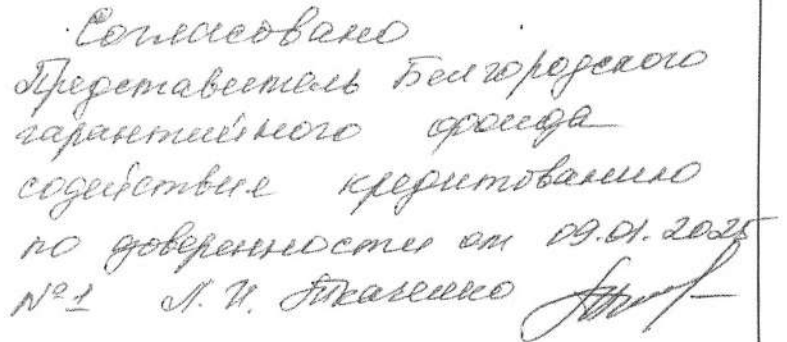 Согласовано
Представитель Белгородского
гарантийного фонда
содействия кредитованию
по доверенности от 09.01.2025
№1 Л. И. Ткаченко